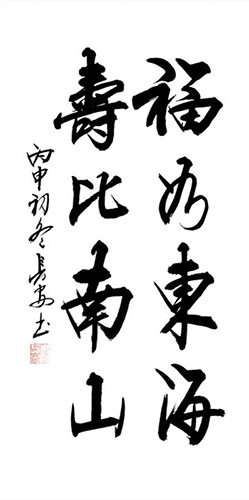 福如東海
壽比南山
丙申初冬長安土